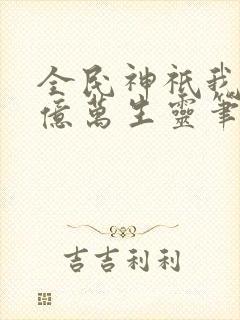 全民神祇我
億萬生靈筆
吉吉利利